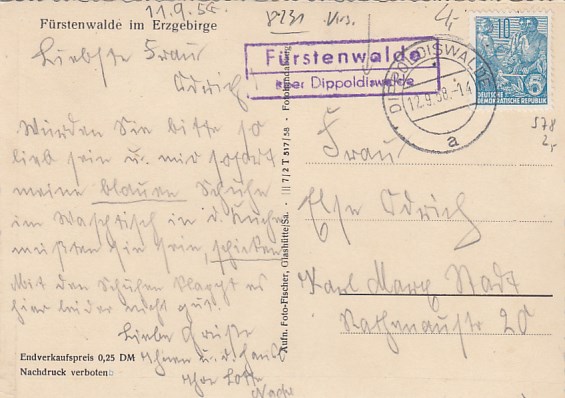 Fürstenwalde im Erzgebirge
11.9.58
8231
Liebste Frau
Odrich!
Würden Sie bitte so
lieb sein u. mir sofort
meine blauen Schuhe
im Waschtisch in d. Küche
müßten sie sein, schicken.
Mit den Schuhen klappt es
hier leider nicht gut.
Liebe Grüße
Ihnen u. d.
Ihre Lotte
Endverkaufspreis 0,25 DM
Nachdruck verboten
Aufn. Foto-Fischer, Glashütte/Sa. · III/7/2 T 817/58 · Fotohandabzug
Fürstenwalde
über Dippoldiswalde
DIPPOLDISWALDE
12.9.58.-14
a
10
DEUTSCHE
DEMOKRATISCHE REPUBLIK
578
2,-
Frau
Else Odrich
Karl Marx Stadt
Rathenaustr 20